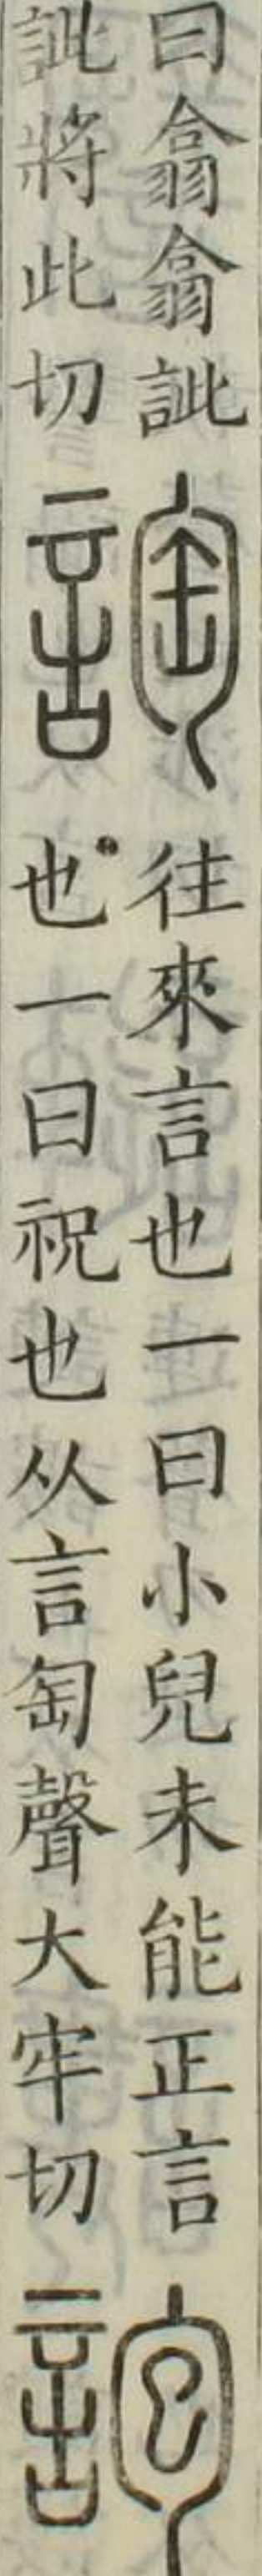 曰翕翕訿
訿將此切
䛬
往來言也一曰小兒未能正言
也一曰祝也从言匋聲大牢切